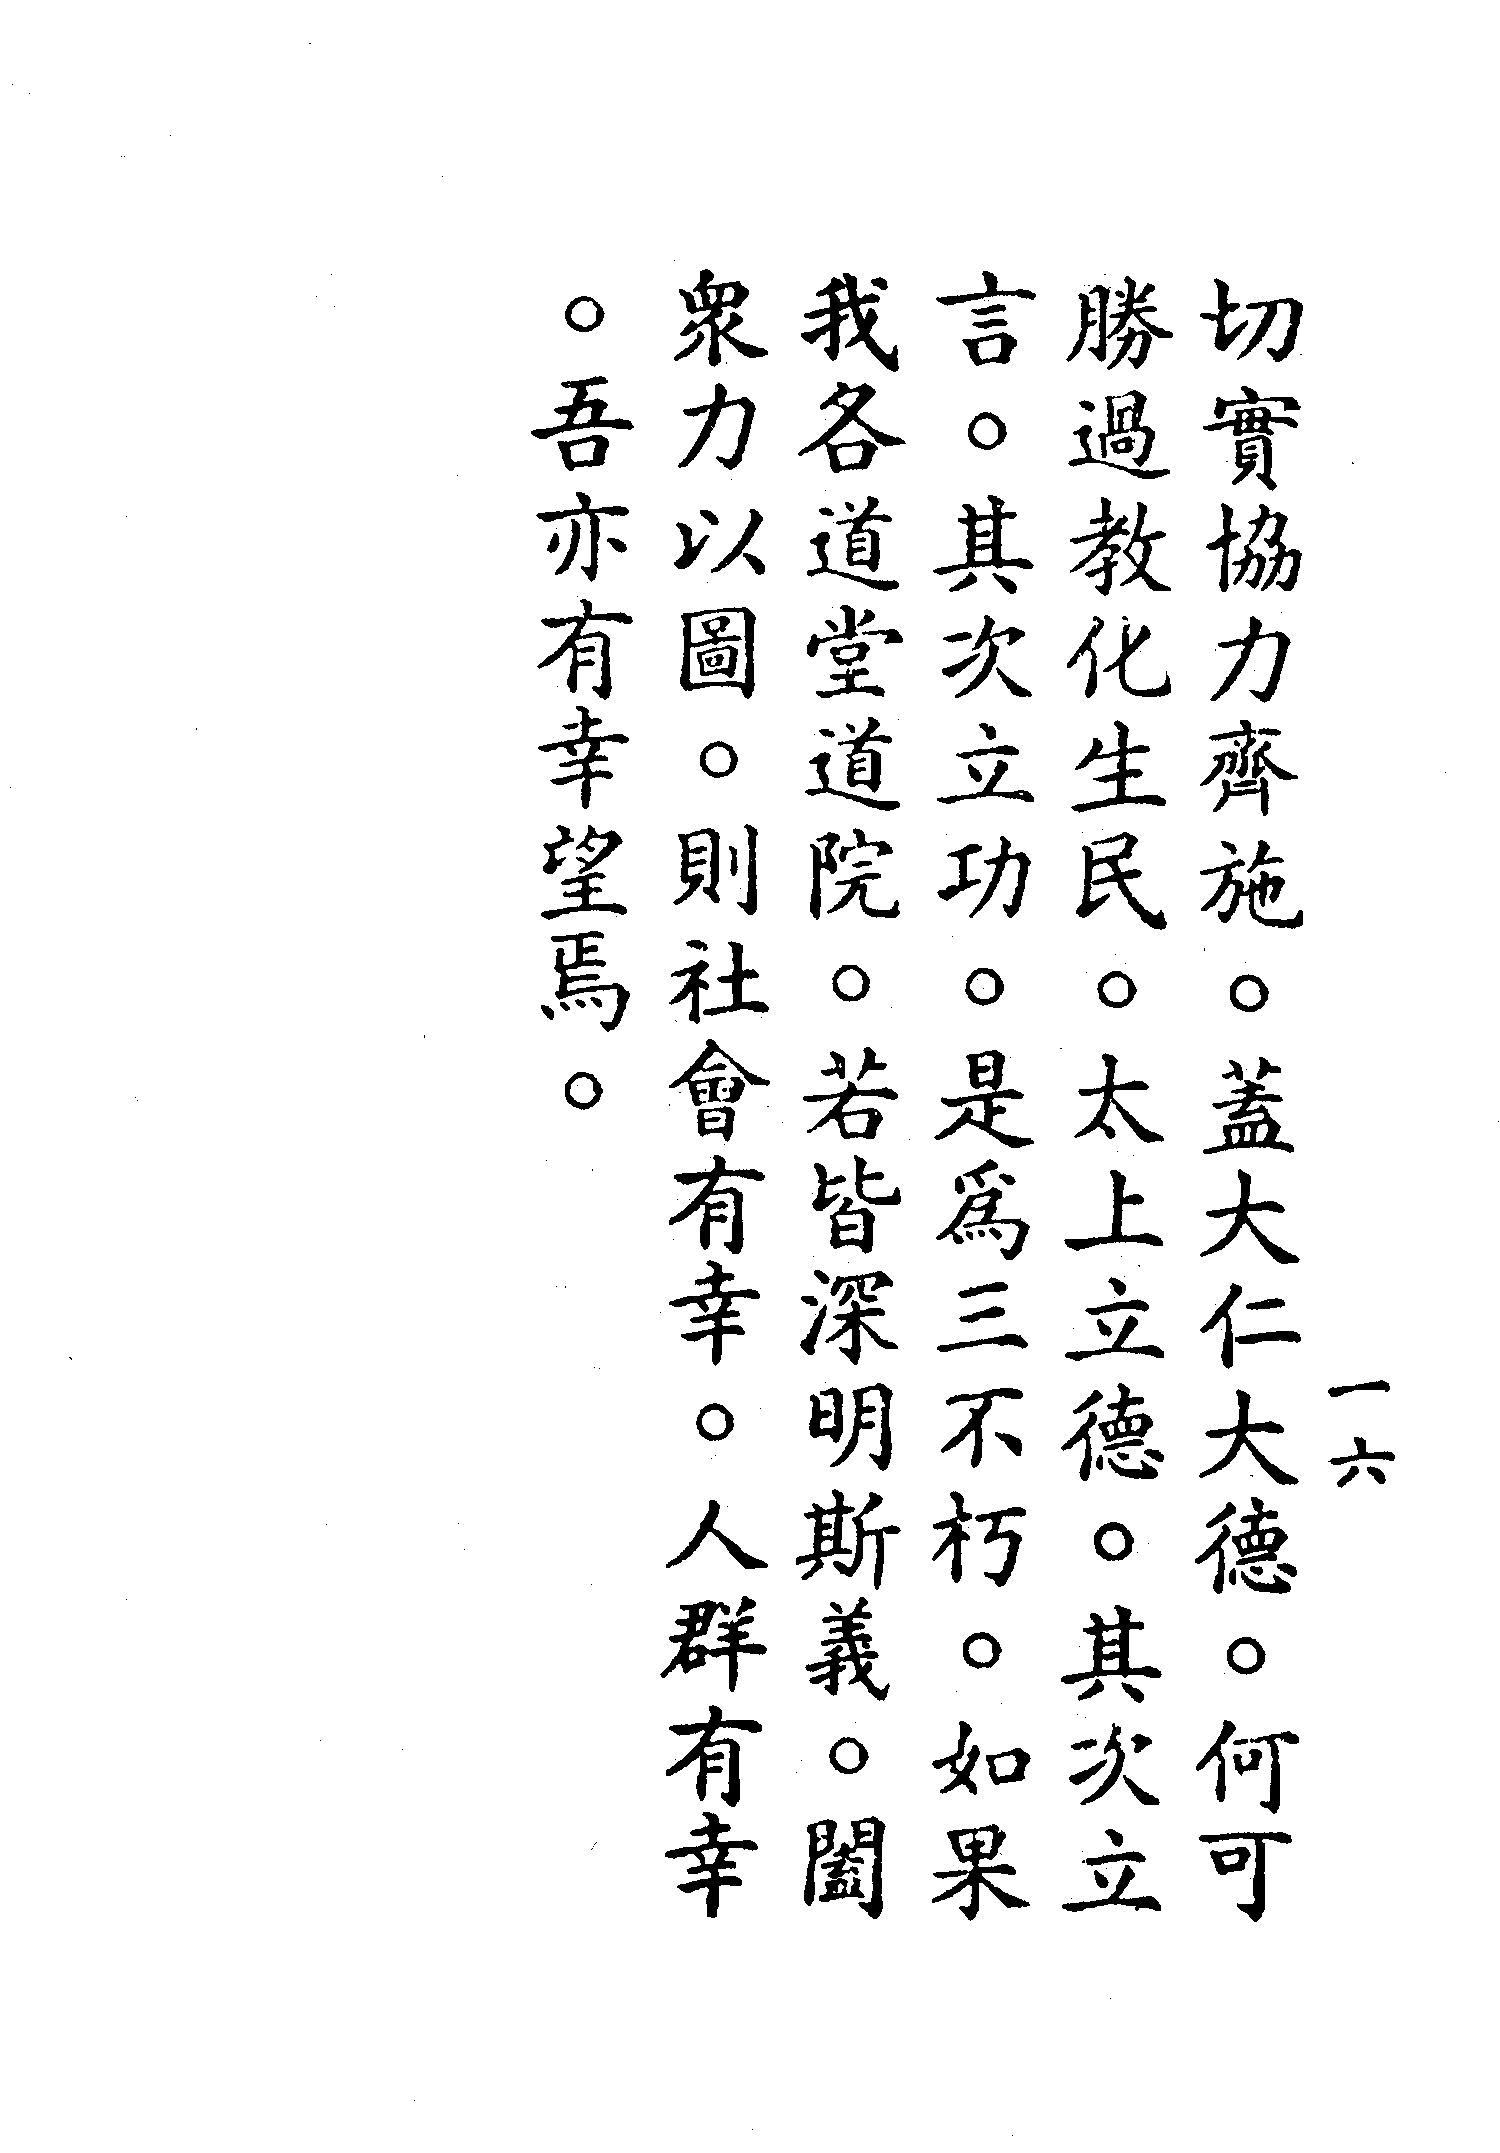 一六
切實協力齊施。蓋大仁大德。何可
勝過教化生民。太上立德。其次立
言。其次立功。是爲三不朽。如果
我各道堂道院。若皆深明斯義。闔
衆力以圖。則社會有幸。人群有幸
。吾亦有幸望焉。